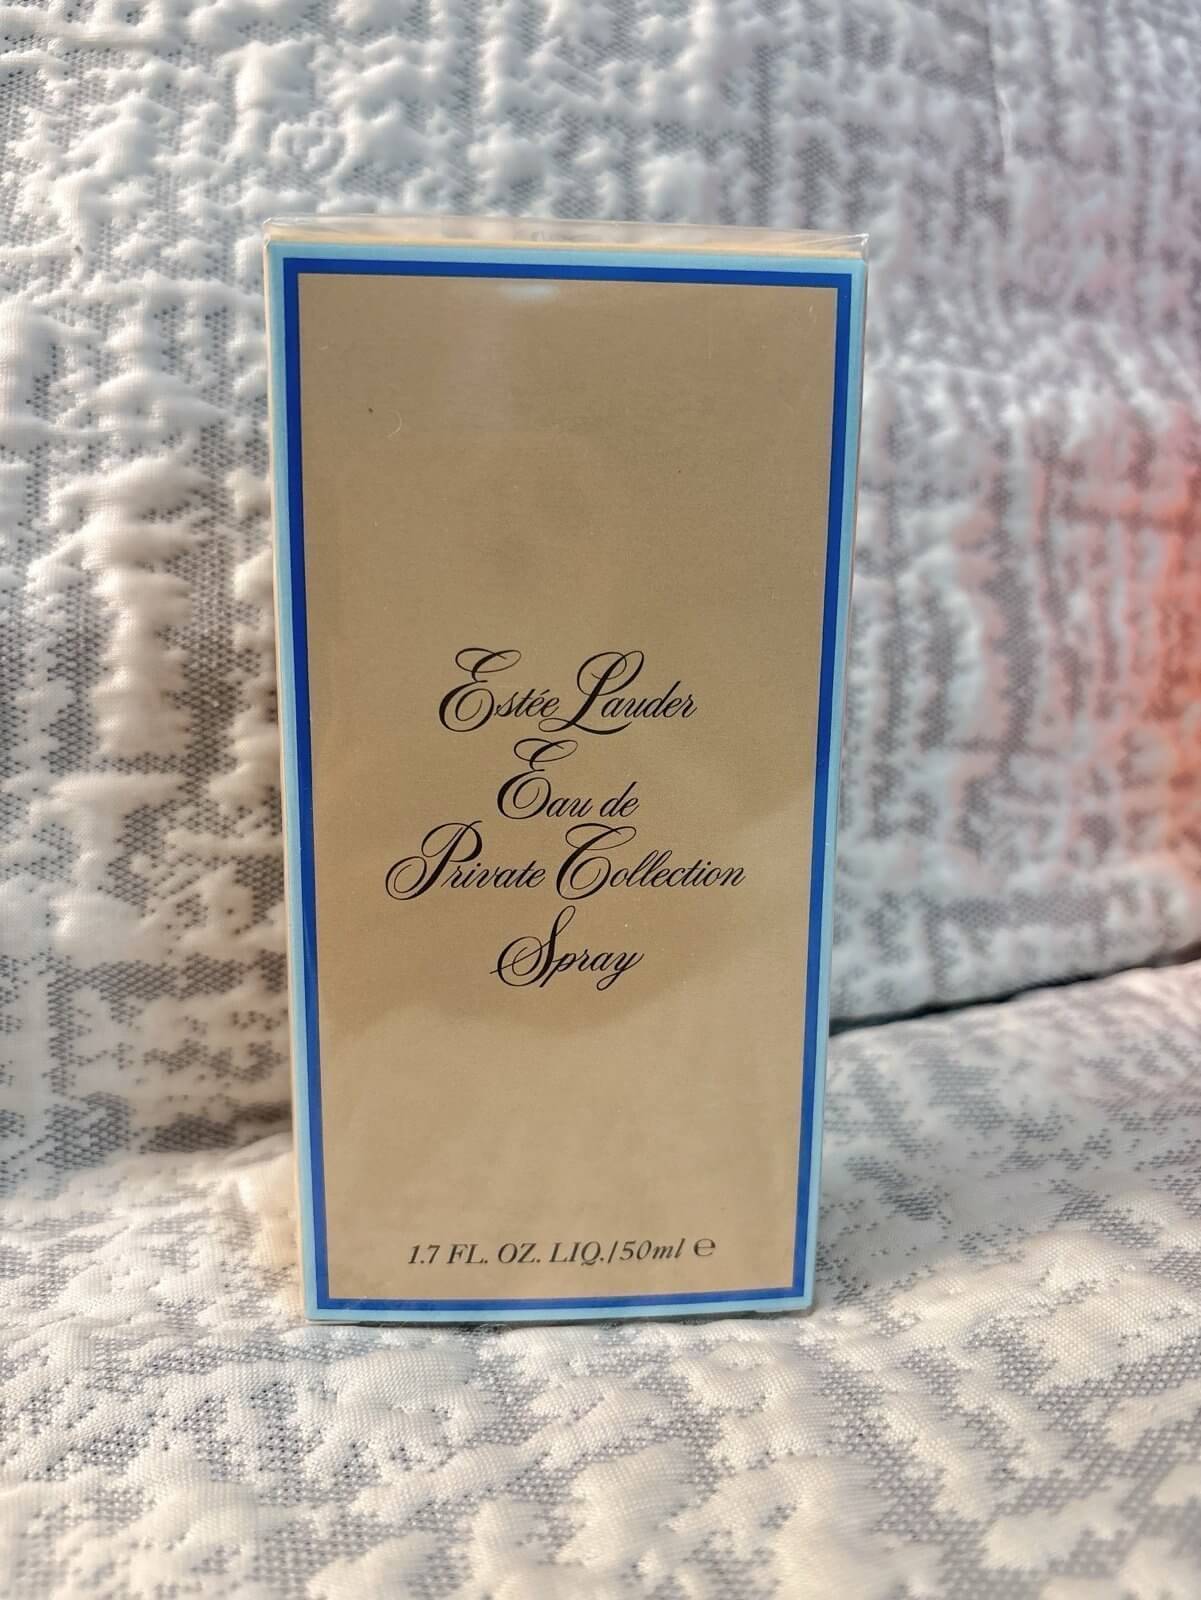 Estée Lauder
Eau de
Private Collection
Spray
1.7 FL. OZ. LIQ./50ml ℮